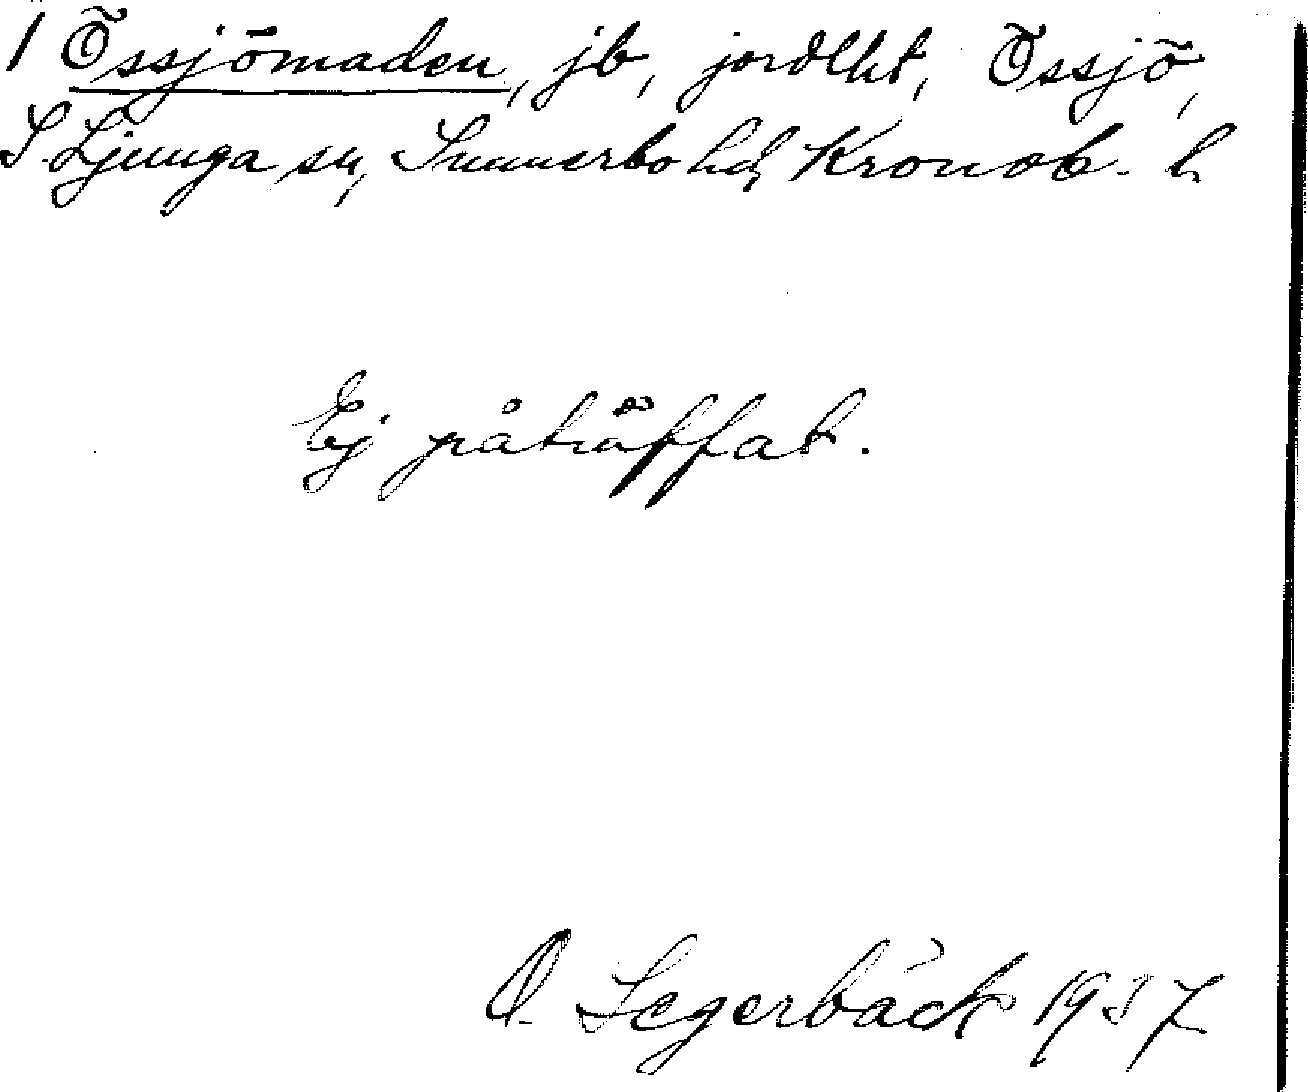 1 Össjömaden, jb, jordlht, Össjö,
S. Ljunga sn, Sunnerbo hd, Kronob. l.
Ej påträffat.
O. Segerbäck 1937